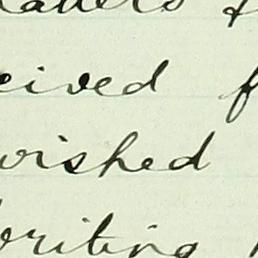 eived f
wished
writing